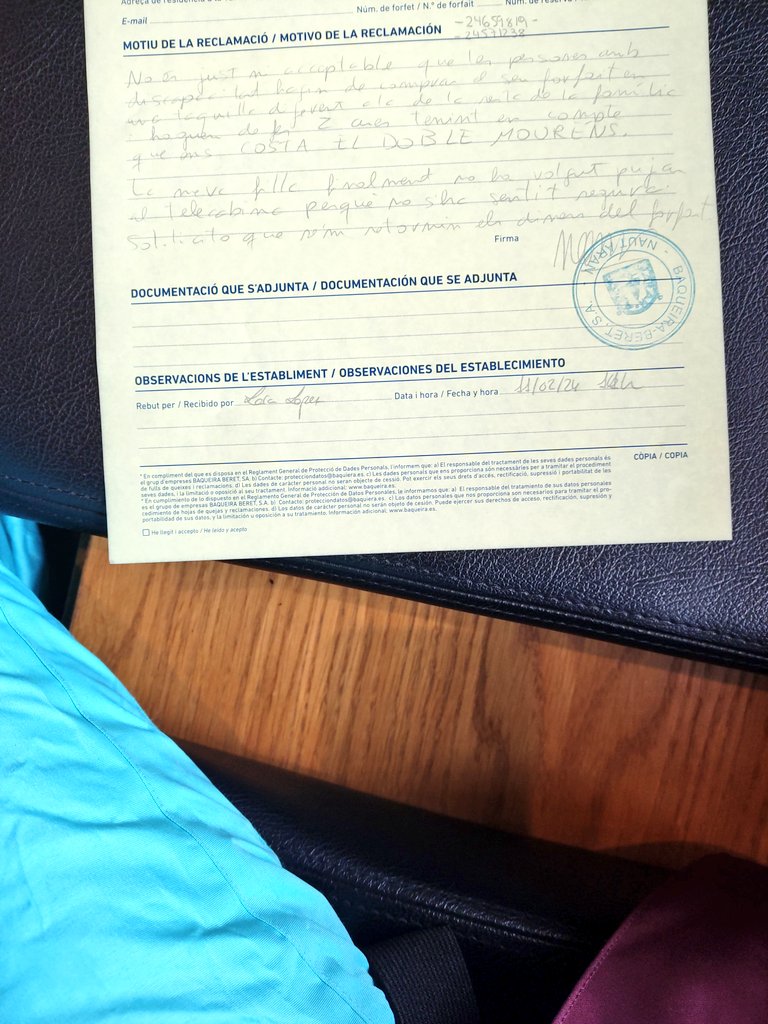 E-mail
Núm. de forfet / N.º de forfait
-24659819-
MOTIU DE LA RECLAMACIÓ / MOTIVO DE LA RECLAMACIÓN
-24591238
No és just ni acceptable que les persones amb
discapacitat hagin de comprar el seu forfait en
una taquilla diferent a la de la resta de la família
i haguem de fer 2 cues tenint en compte
que ens COSTA EL DOBLE MOURENS.
La meva filla finalment no ha volgut pujar
al telecabina perque no s'ha sentit segura.
Sol·licito que sem retornin els diners del forfait.
Firma
BAQUEIRA-BERET, S.A. - NAUT ARAN -
DOCUMENTACIÓ QUE S'ADJUNTA / DOCUMENTACIÓN QUE SE ADJUNTA
OBSERVACIONS DE L'ESTABLIMENT / OBSERVACIONES DEL ESTABLECIMIENTO
Rebut per / Recibido por Data i hora / Fecha y hora 11/02/24
CÒPIA / COPIA
* En compliment del que es disposa en el Reglament General de Protecció de Dades Personals, l'informem que: a) El responsable del tractament de les seves dades personals és
el grup d'empreses BAQUEIRA BERET, S.A. b) Contacte: protecciondatos@baqueira.es. c) Les dades personals que ens proporciona són necessàries per a tramitar el procediment
de fulls de queixes i reclamacions. d) Les dades de caràcter personal no seran objecte de cessió. Pot exercir els seus drets d'accés, rectificació, supressió i portabilitat de les
seves dades, i la limitació o oposició al seu tractament. Informació addicional: www.baqueira.es.
* En cumplimiento de lo dispuesto en el Reglamento General de Protección de Datos Personales, le informamos que: a) El responsable del tratamiento de sus datos personales
es el grupo de empresas BAQUEIRA BERET, S.A. b) Contacto: protecciondatos@baqueira.es. c) Los datos personales que nos proporciona son necesarios para tramitar el pro-
cedimiento de hojas de quejas y reclamaciones. d) Los datos de carácter personal no serán objeto de cesión. Puede ejercer sus derechos de acceso, rectificación, supresión y
portabilidad de sus datos, y la limitación u oposición a su tratamiento. Información adicional: www.baqueira.es.
He llegit i accepto / He leído y acepto